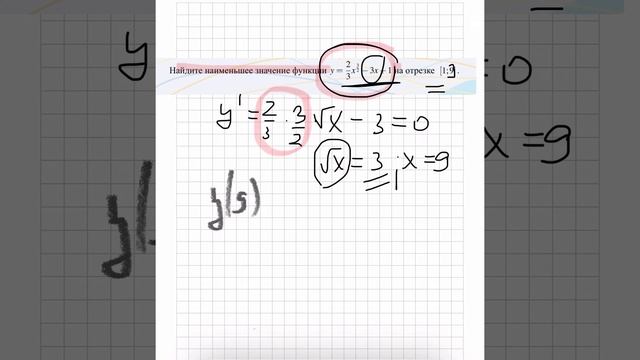 Найдите наименьшее значение функции y = 2/3 x^(3/2) − 3x + 1 на отрезке [1; 9].
y' = 2/3 · 3/2 √x − 3 = 0
√x = 3, x = 9
y(9)